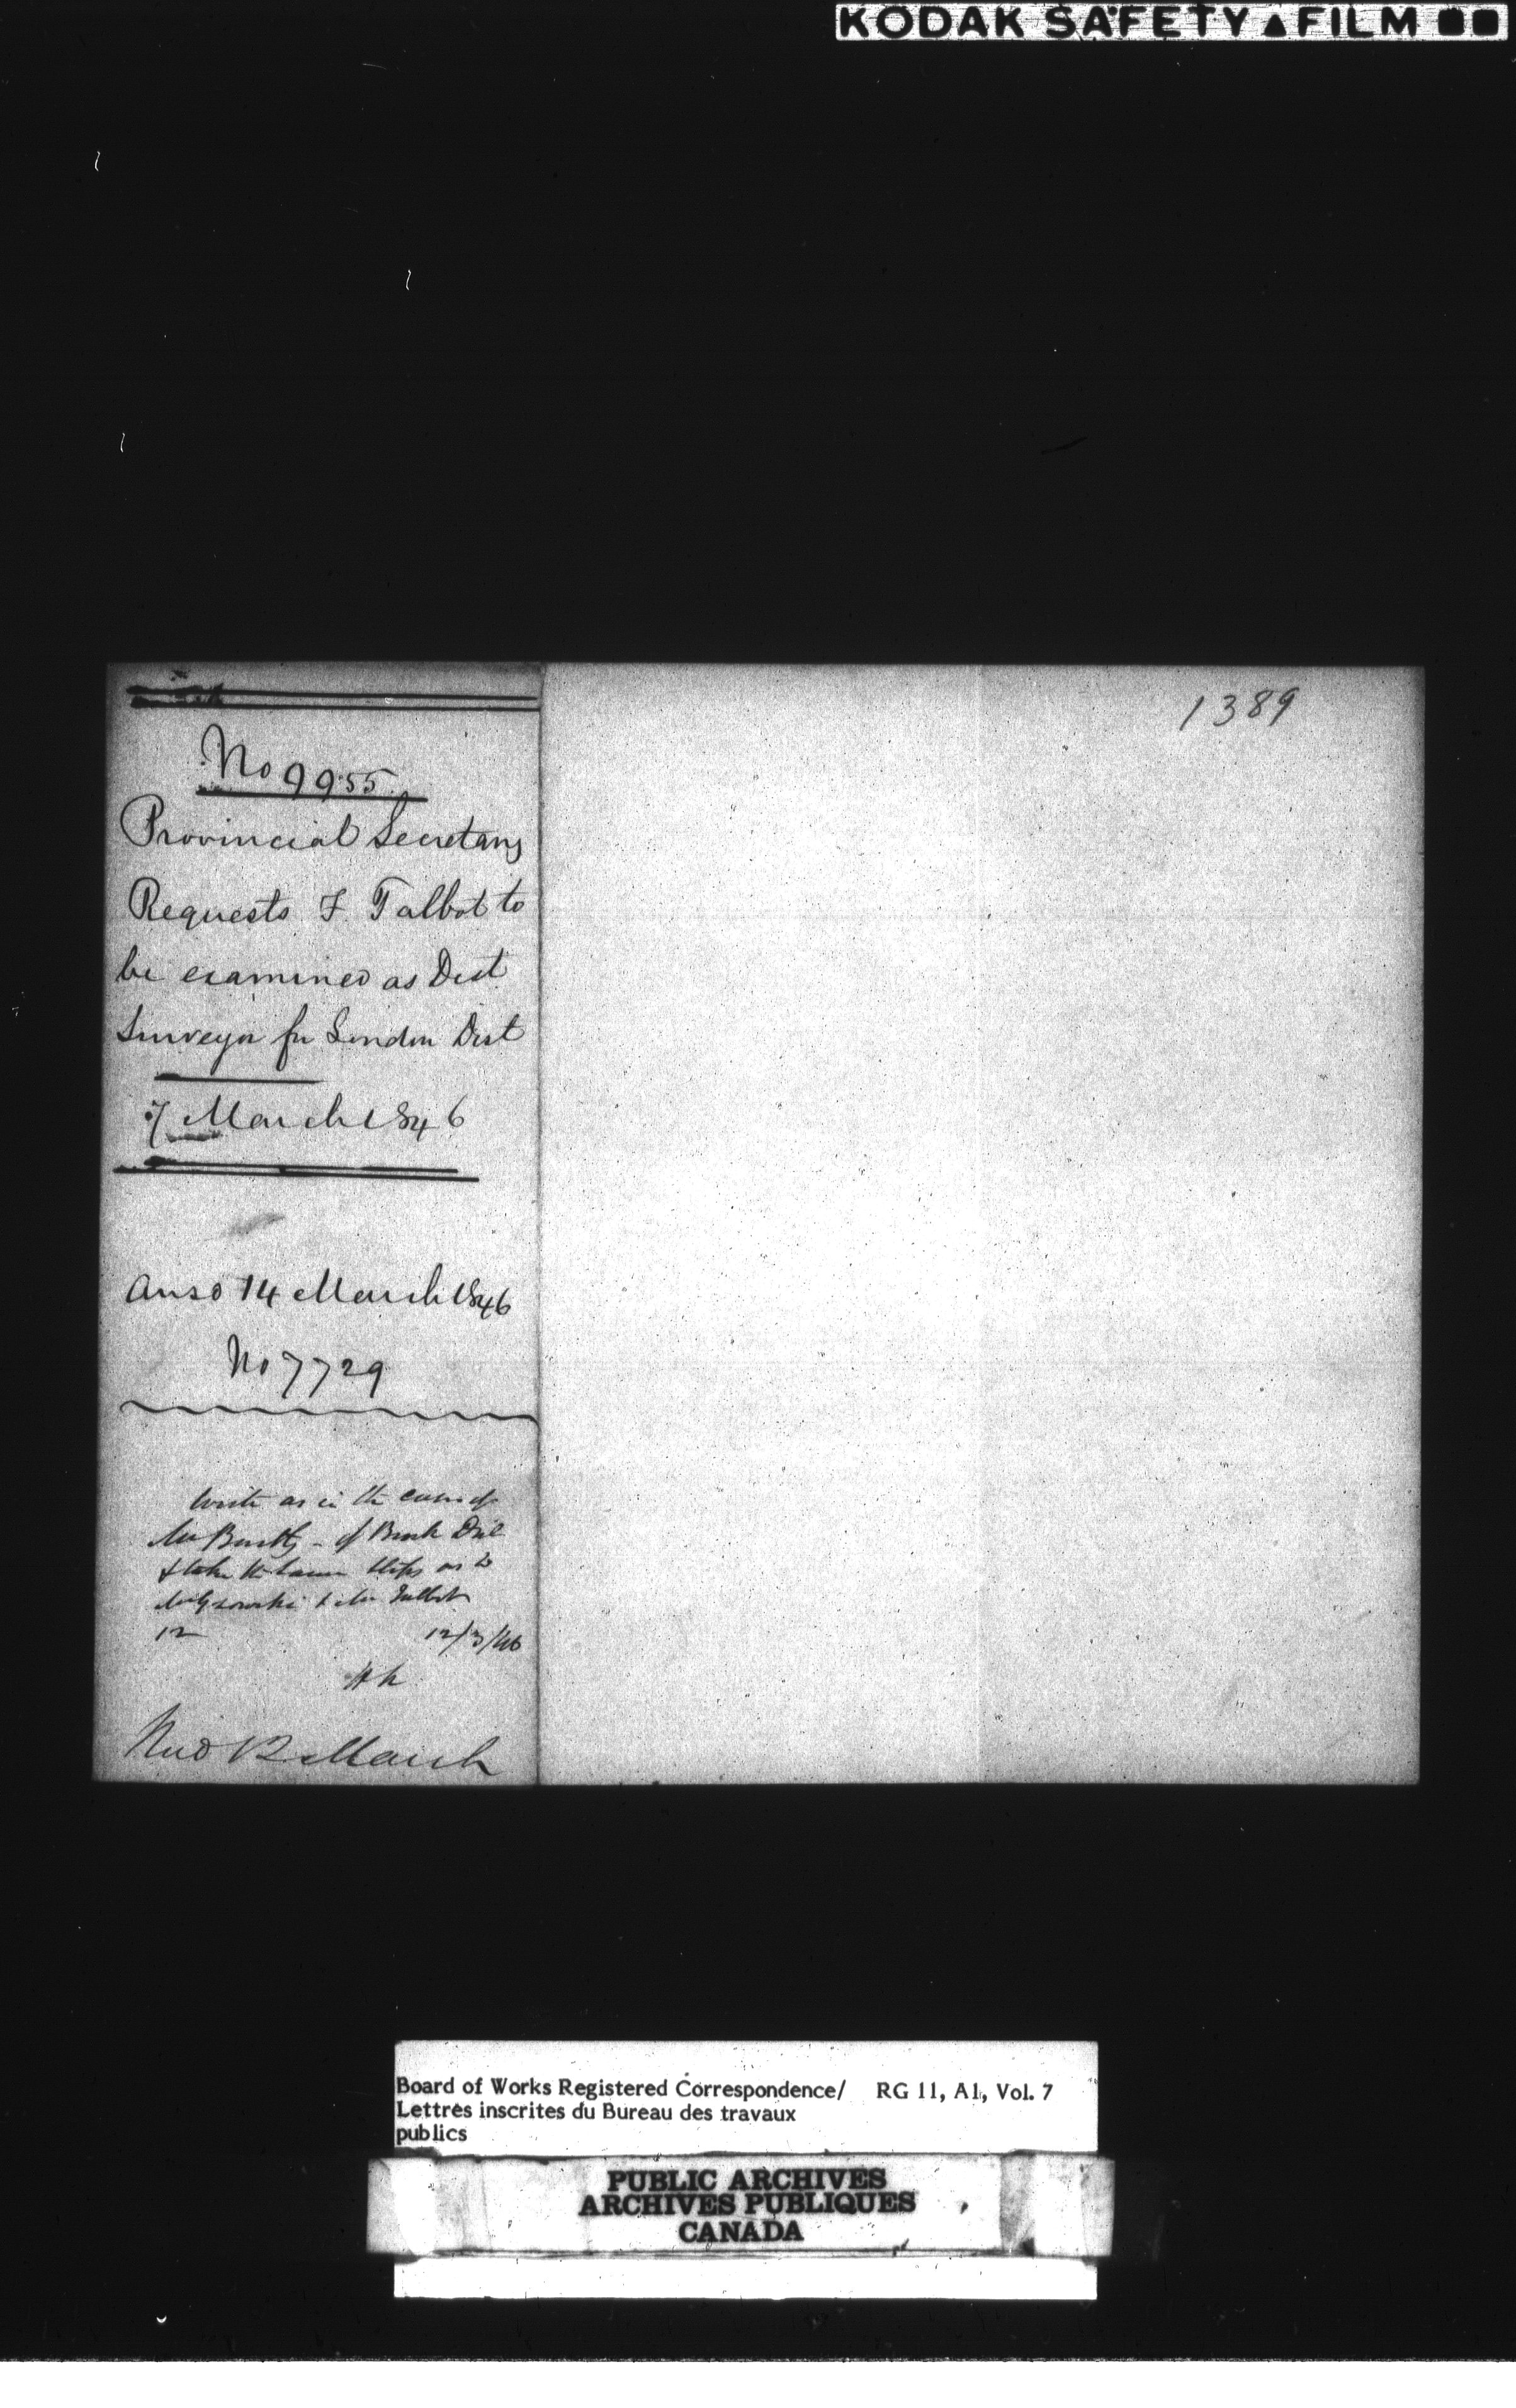 KODAK SAFETY ▲ FILM
1389
No 9955
Provincial Secretary
Requests F Talbot to
be examined as Dist
Surveyor for London Dist
7 March 1846
Ansd 14 March 1846
No 7729
Write as in the case of
Mr - of Brock Dist
& take the same steps as to
& Mr Talbot
12 12/3/46
HK
Recd 12 March
Board of Works Registered Correspondence/ RG 11, A1, Vol. 7
Lettres inscrites du Bureau des travaux
publics
PUBLIC ARCHIVES
ARCHIVES PUBLIQUES
CANADA